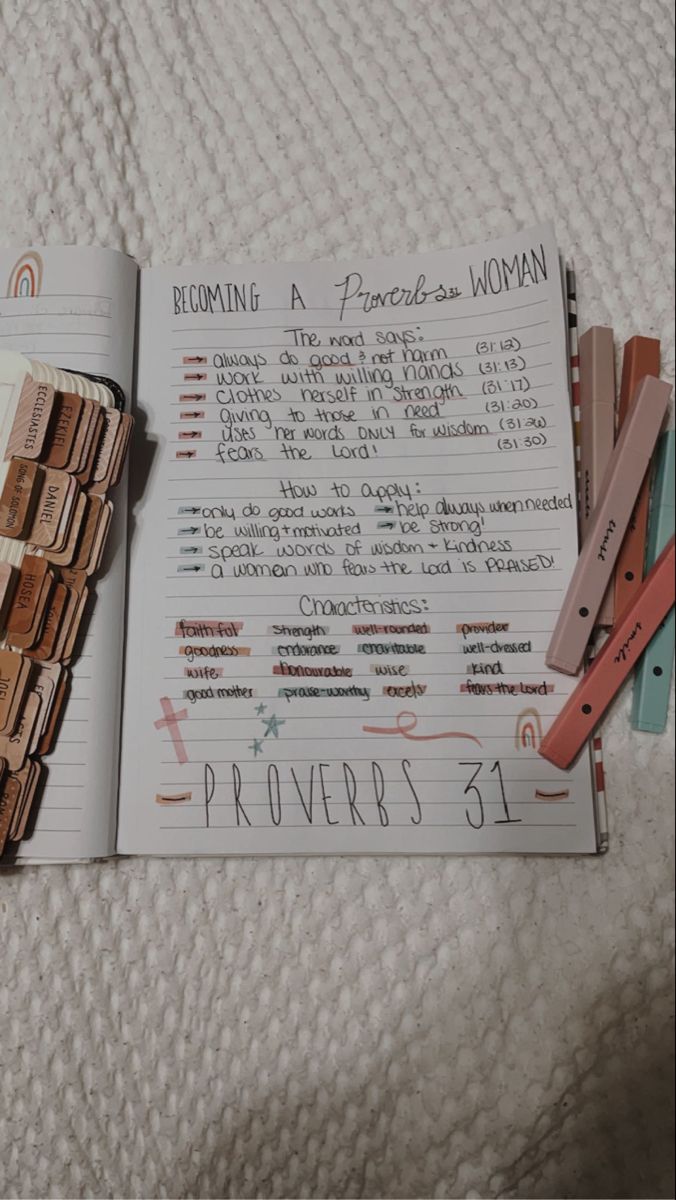 BECOMING A Proverbs 31 WOMAN
The word says:
→ always do good & not harm (31:12)
→ work with willing hands (31:13)
→ clothes herself in strength (31:17)
→ giving to those in need (31:20)
→ uses her words ONLY for wisdom (31:26)
→ fears the Lord! (31:30)
How to apply:
→ only do good works → help always when needed
→ be willing + motivated → be strong!
→ speak words of wisdom + kindness
→ a woman who fears the Lord is PRAISED!
Characteristics:
faithful strength well-rounded provider
goodness endurance charitable well-dressed
wife honourable wise kind
good mother praise-worthy excels fears the Lord
PROVERBS 31
ECCLESIASTES
EZEKIEL
SONG OF SOLOMON
DANIEL
HOSEA
JOEL
smile